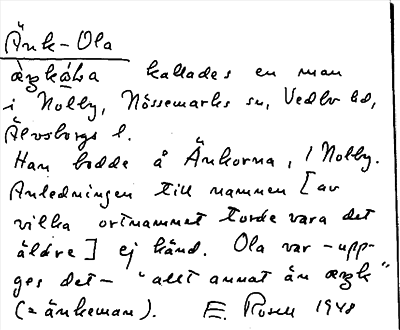 Änk-Ola
æ̀ŋkó̱la kallades en man
i Nolby, Nössemarks sn, Vedbo hd,
Älvsborgs l.
Han bodde å Änkorna, i Nolby.
Anledningen till namnen [av
vilka ortnamnet torde vara det
äldre] ej känd. Ola var -upp-
ges det- "allt annat än æŋk"
(= änkeman). E. Rosell 1948